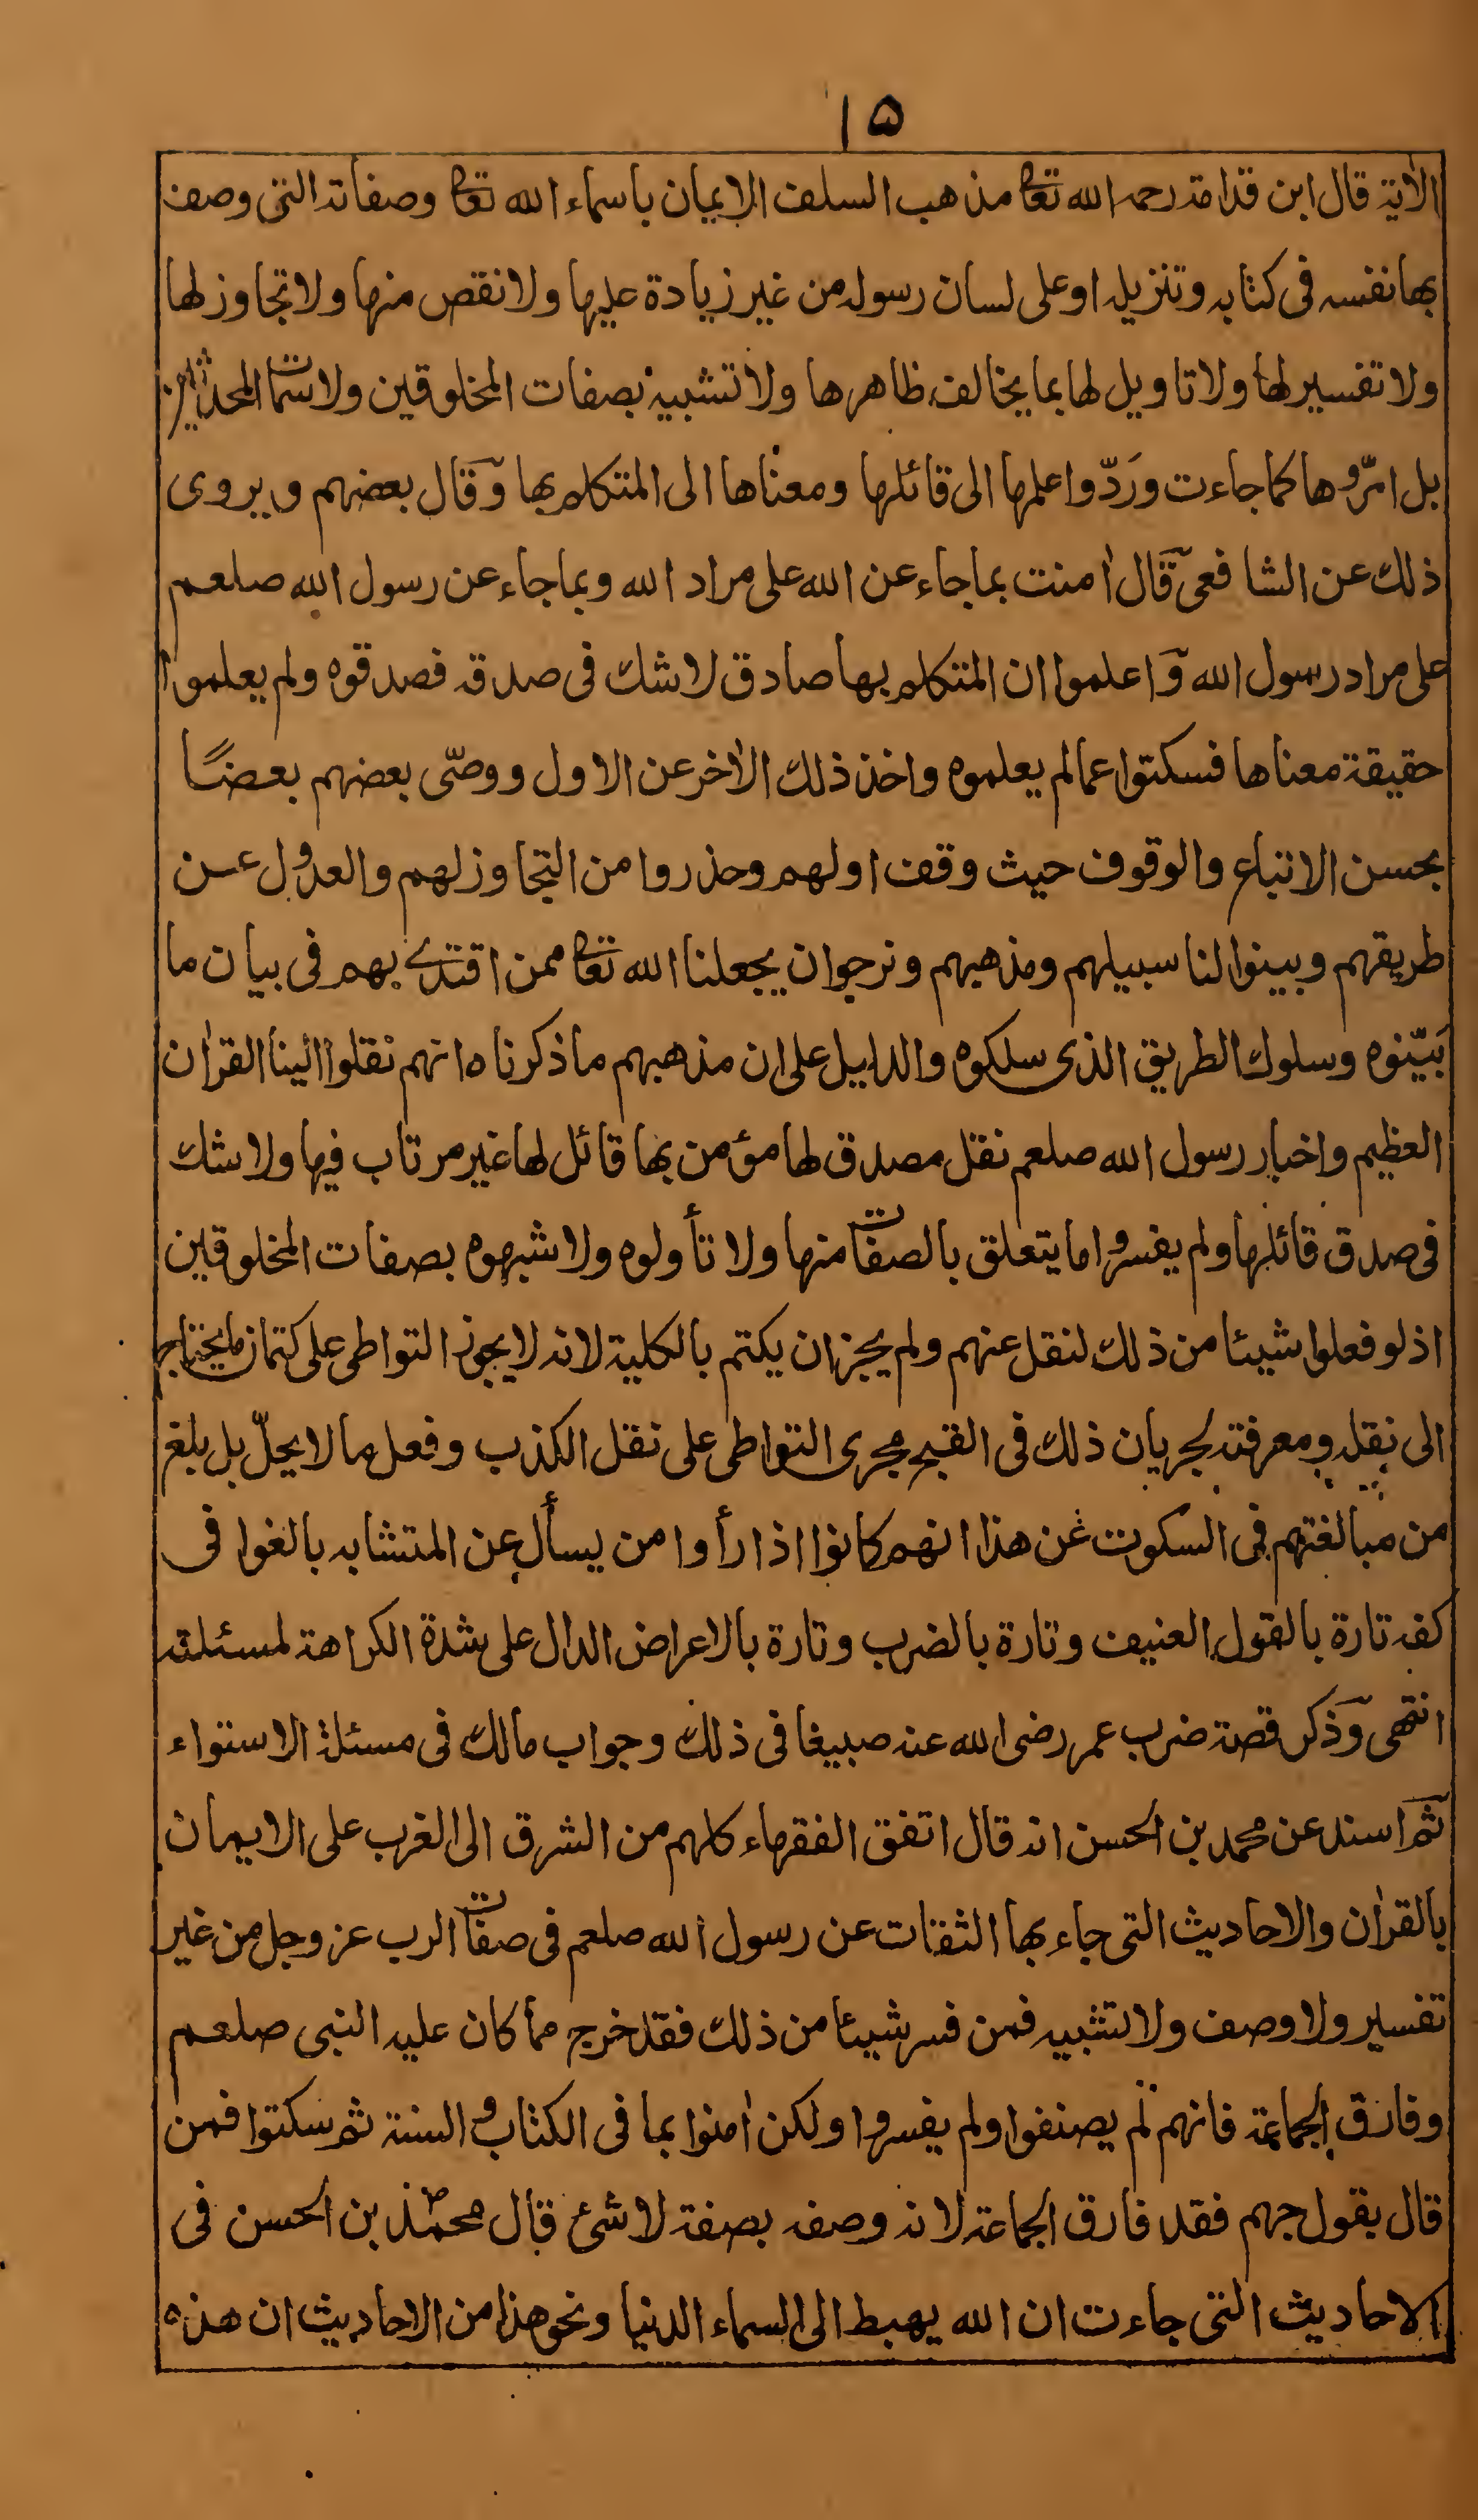 ١٥
الاٰية قال ابن قدامة رحمه الله تعا مذهب السلف الايمان باسماء الله تعا وصفاته التى وصف
بها نفسه فى كتابه وتنزيله او على لسان رسوله من غير زيادة عليها ولا نقص منها ولا تجاوز لها
ولا تفسير لها ولا تاويل لها بما يخالف ظاهرها ولا تشبيه بصفات المخلوقين ولا سمات المحدثين
بل امرّوها كما جاءت ورَدّوا علمها الى قائلها ومعناها الى المتكلم بها وقال بعضهم ويروى
ذلك عن الشافعى قال اٰمنت بما جاء عن الله على مراد الله وبما جاء عن رسول الله صلعم
على مراد رسول الله واعلموا ان المتكلم بها صادق لا شك فى صدقه فصدقوه ولم يعلموا
حقيقة معناها فسكتوا عما لم يعلموه واخذ ذلك الاٰخر عن الاول ووصّى بعضهم بعضًا
بحسن الاتباع والوقوف حيث وقف اولهم وحذروا من التجاوز لهم والعدول عن
طريقهم وبينوا لنا سبيلهم ومذهبهم ونرجوان يجعلنا الله تعا ممن اقتدى بهم فى بيان ما
بَيّنوه وسلوك الطريق الذى سلكوه والدليل على ان مذهبهم ما ذكرناه انهم نقلوا الينا القراٰن
العظيم واخبار رسول الله صلعم نقل مصدق لها مؤمن بها قائل لها غير مرتاب فيها ولا شك
فى صدق قائلها ولم يفسروا ما يتعلق بالصفات منها ولا تأولوه ولا شبهوه بصفات المخلوقين
اذ لو فعلوا شيئا من ذلك لنقل عنهم ولم يجز ان يكتم بالكلية لانه لا يجوز التواطى على كتمان ما يحتاج
الى نقله ومعرفته لجريان ذلك فى القبح مجرى التواطى على نقل الكذب وفعل ما لا يحلّ بل بلغ
من مبالغتهم فى السكوت عن هذا انهم كانوا اذا رأوا من يسأل عن المتشابه بالغوا فى
كفه تارة بالقول العنيف وتارة بالضرب وتارة بالاعراض الدال على شدة الكراهة لمسئلته
انتهى وذكر قصة ضرب عمر رضى الله عنه صبيغا فى ذلك وجواب مالك فى مسئلة الاستواء
ثم اسند عن محمد بن الحسن انه قال اتفق الفقهاء كلهم من الشرق الى الغرب على الايمان
بالقراٰن والاحاديث التى جاء بها الثقات عن رسول الله صلعم فى صفات الرب عز وجل من غير
تفسير ولا وصف ولا تشبيه فمن فسر شيئا من ذلك فقد خرج مما كان عليه النبى صلعم
وفارق الجماعة فانهم لم يصنفوا ولم يفسروا ولكن اٰمنوا بما فى الكتاب والسنة ثم سكتوا فمن
قال بقول جهم فقد فارق الجماعة لانه وصفه بصفة لا شئ قال محمد بن الحسن فى
الاحاديث التى جاءت ان الله يهبط الى السماء الدنيا ونحو هذا من الاحاديث ان هذه